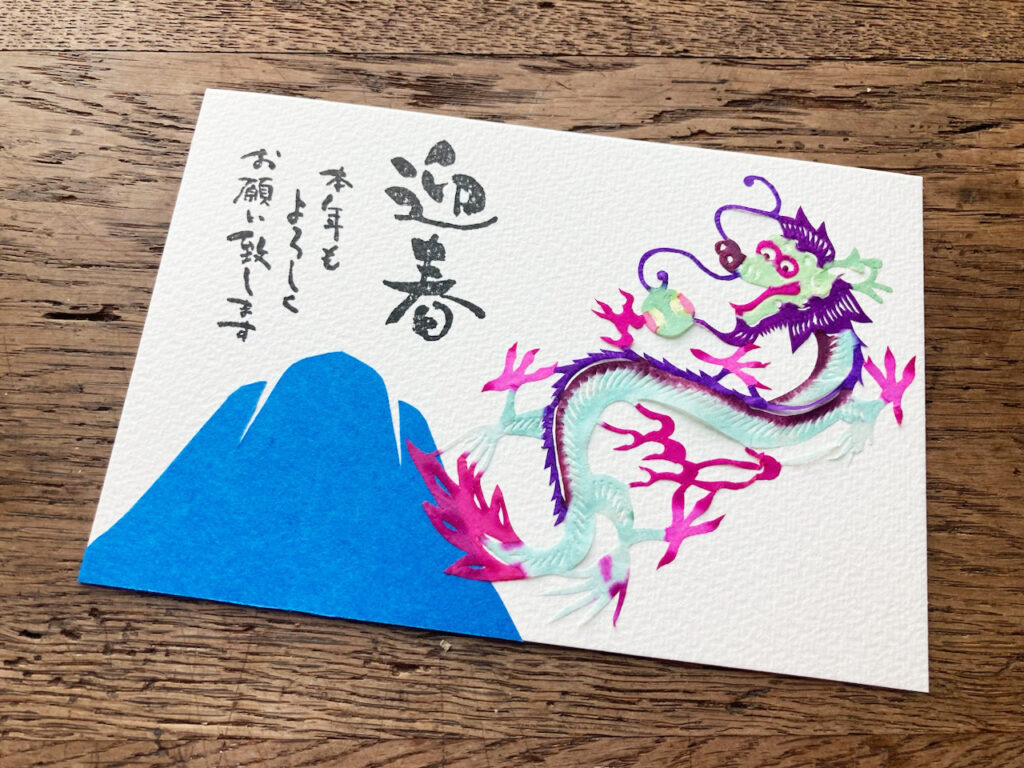 迎春
本年も
よろしく
お願い致します